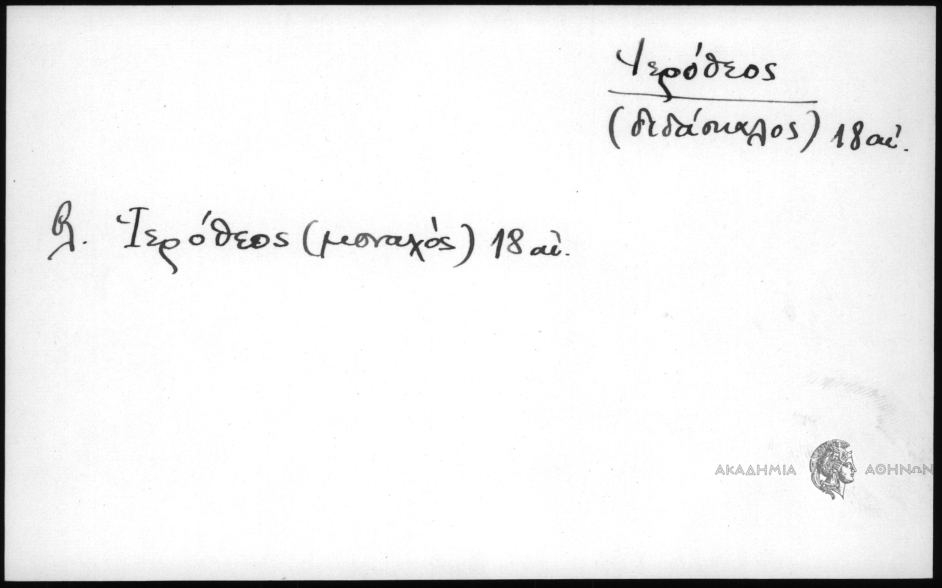 Ἱερόθεος
(διδάσκαλος) 18 αἰ.
βλ. Ἱερόθεος (μοναχός) 18 αἰ.
ΑΚΑΔΗΜΙΑ ΑΘΗΝΩΝ